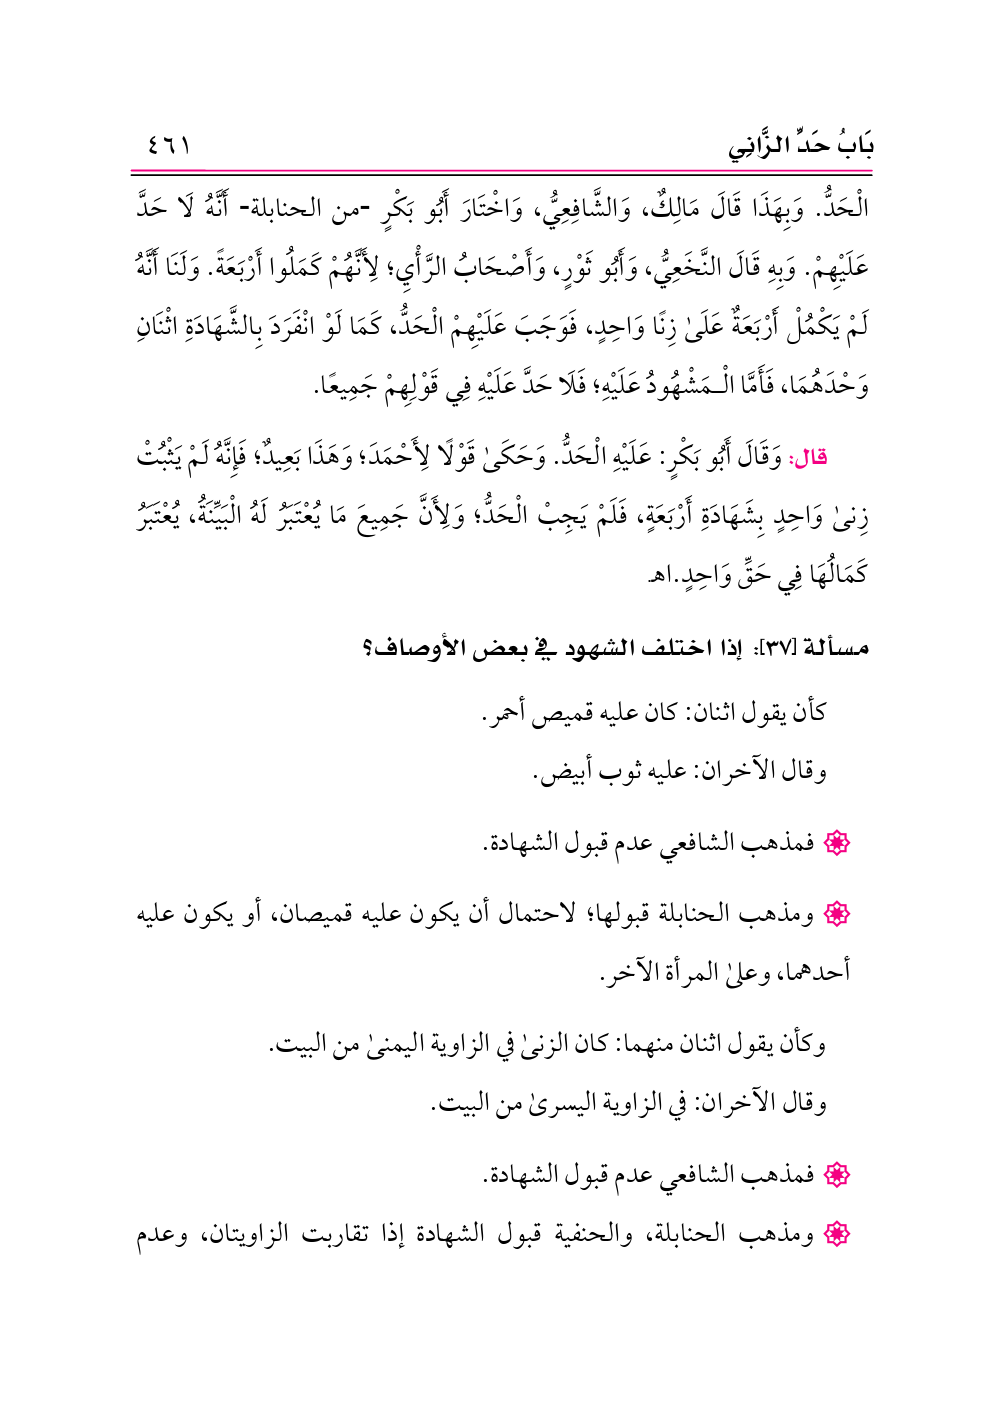 بَابُ حَدِّ الزَّانِي ٤٦١
الْحَدُّ. وَبِهَذَا قَالَ مَالِكٌ، وَالشَّافِعِيُّ، وَاخْتَارَ أَبُو بَكْرٍ -من الحنابلة- أَنَّهُ لَا حَدَّ
عَلَيْهِمْ. وَبِهِ قَالَ النَّخَعِيُّ، وَأَبُو ثَوْرٍ، وَأَصْحَابُ الرَّأْيِ؛ لِأَنَّهُمْ كَمَلُوا أَرْبَعَةً. وَلَنَا أَنَّهُ
لَمْ يَكْمُلْ أَرْبَعَةٌ عَلَىٰ زِنًا وَاحِدٍ، فَوَجَبَ عَلَيْهِمْ الْحَدُّ، كَمَا لَوْ انْفَرَدَ بِالشَّهَادَةِ اثْنَانِ
وَحْدَهُمَا، فَأَمَّا الْـمَشْهُودُ عَلَيْهِ؛ فَلَا حَدَّ عَلَيْهِ فِي قَوْلِهِمْ جَمِيعًا.
قال: وَقَالَ أَبُو بَكْرٍ: عَلَيْهِ الْحَدُّ. وَحَكَىٰ قَوْلًا لِأَحْمَدَ؛ وَهَذَا بَعِيدٌ؛ فَإِنَّهُ لَمْ يَثْبُتْ
زِنىٰ وَاحِدٍ بِشَهَادَةِ أَرْبَعَةٍ، فَلَمْ يَجِبْ الْحَدُّ؛ وَلِأَنَّ جَمِيعَ مَا يُعْتَبَرُ لَهُ الْبَيِّنَةُ، يُعْتَبَرُ
كَمَالُهَا فِي حَقِّ وَاحِدٍ.اهـ
مسألة [٣٧]: إذا اختلف الشهود في بعض الأوصاف؟
كأن يقول اثنان: كان عليه قميص أحمر.
وقال الآخران: عليه ثوب أبيض.
فمذهب الشافعي عدم قبول الشهادة.
ومذهب الحنابلة قبولها؛ لاحتمال أن يكون عليه قميصان، أو يكون عليه
أحدهما، وعلىٰ المرأة الآخر.
وكأن يقول اثنان منهما: كان الزنىٰ في الزاوية اليمنىٰ من البيت.
وقال الآخران: في الزاوية اليسرىٰ من البيت.
فمذهب الشافعي عدم قبول الشهادة.
ومذهب الحنابلة، والحنفية قبول الشهادة إذا تقاربت الزاويتان، وعدم